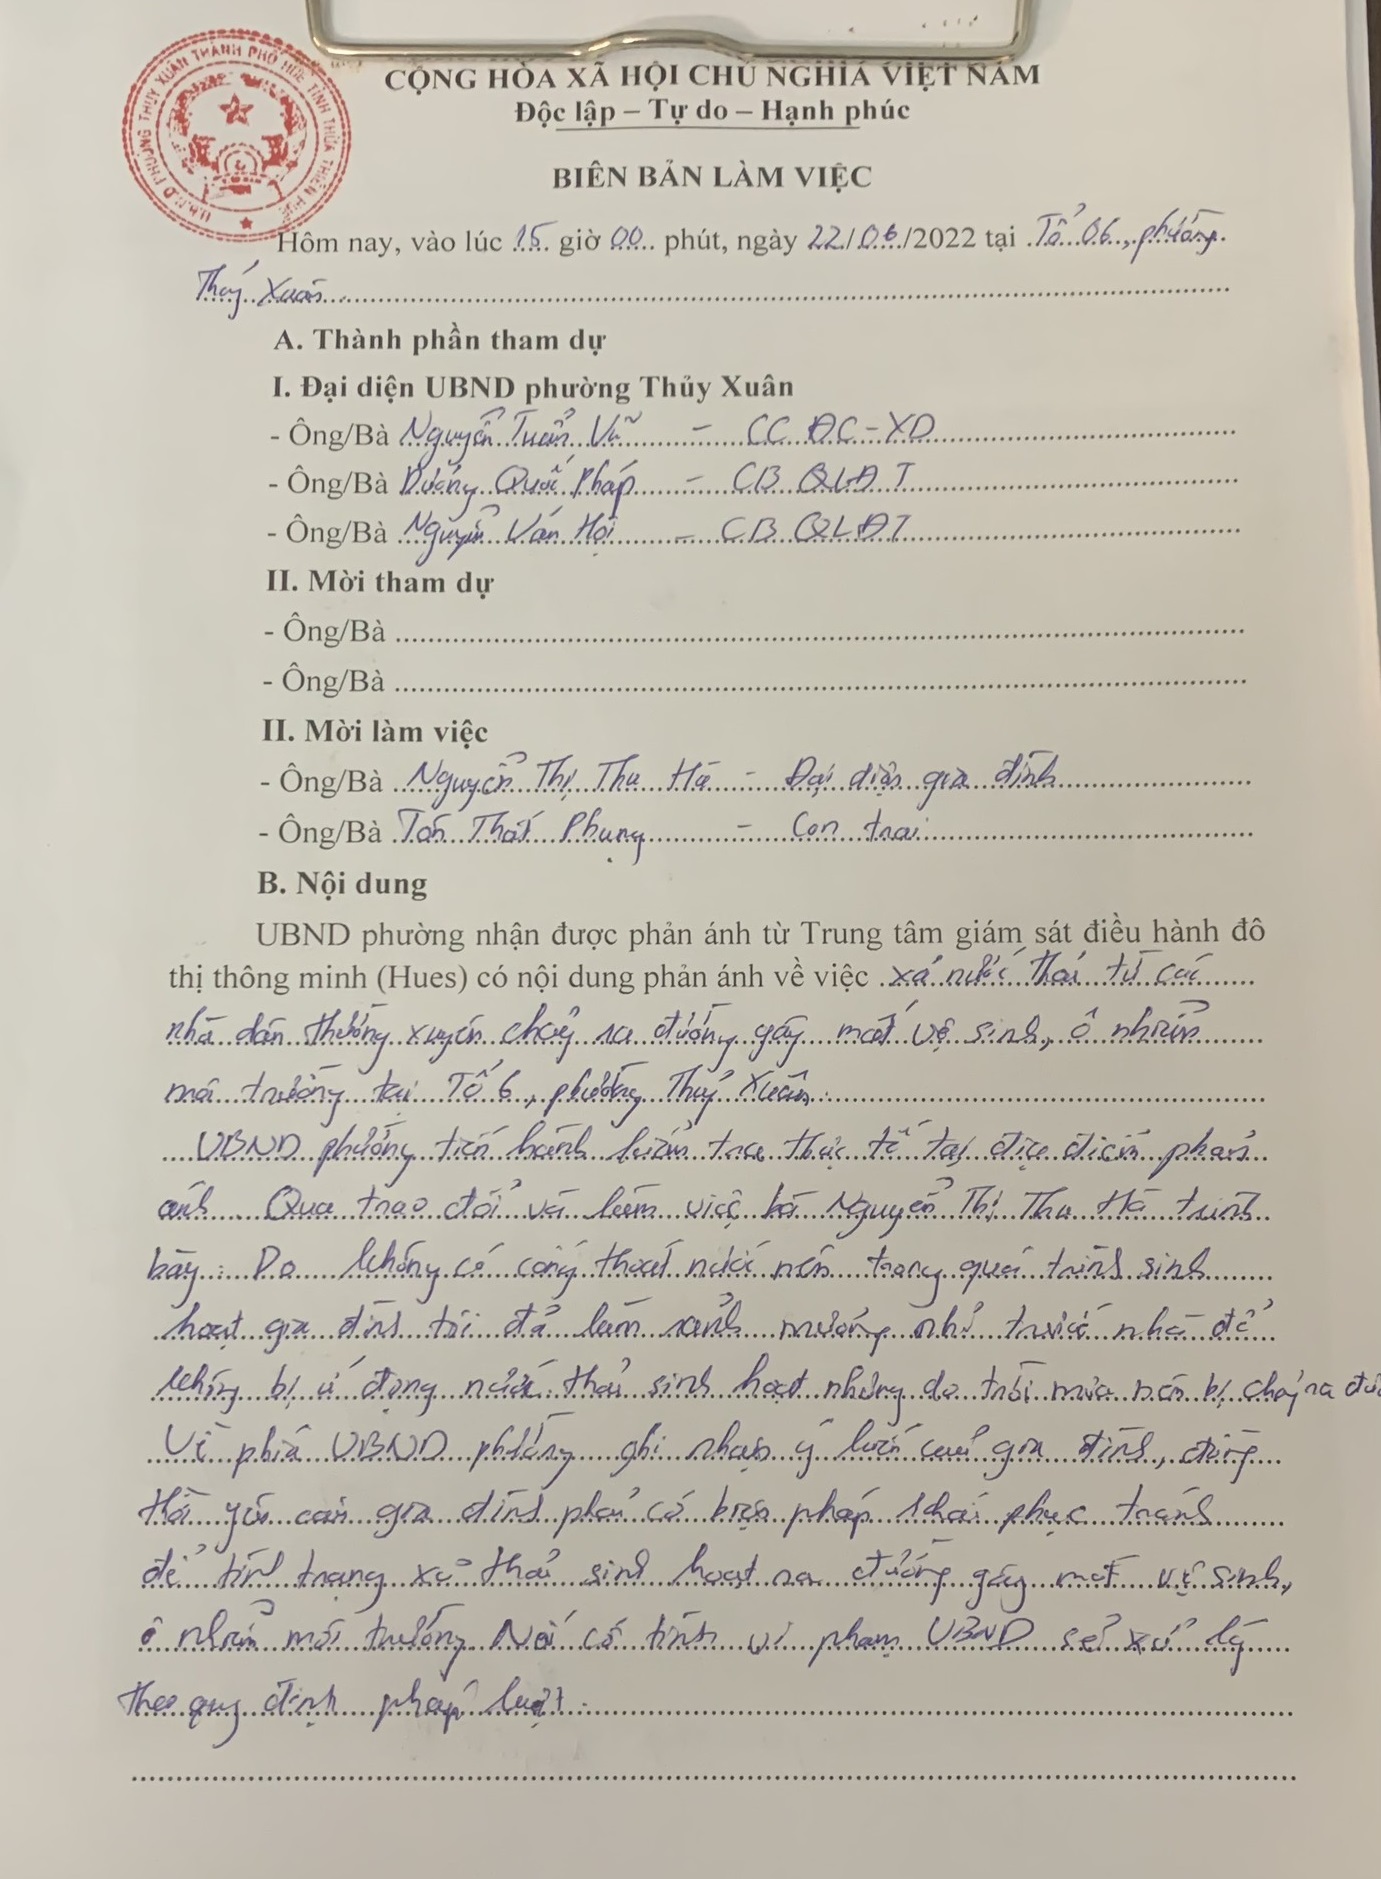 U.B.N.D PHƯỜNG THỦY XUÂN THÀNH PHỐ HUẾ TỈNH THỪA THIÊN HUẾ
CỘNG HÒA XÃ HỘI CHỦ NGHĨA VIỆT NAM
Độc lập – Tự do – Hạnh phúc
BIÊN BẢN LÀM VIỆC
Hôm nay, vào lúc 15 giờ 00 phút, ngày 22/06/2022 tại Tổ 06, phường
Thủy Xuân
A. Thành phần tham dự
I. Đại diện UBND phường Thủy Xuân
- Ông/Bà Nguyễn Tuấn Vũ - CC ĐC-XD
- Ông/Bà Dương Quốc Pháp - CB QLĐT
- Ông/Bà Nguyễn Văn Hội - CB QLĐT
II. Mời tham dự
- Ông/Bà
- Ông/Bà
II. Mời làm việc
- Ông/Bà Nguyễn Thị Thu Hà - Đại diện gia đình
- Ông/Bà Tôn Thất Phụng - Con trai
B. Nội dung
UBND phường nhận được phản ánh từ Trung tâm giám sát điều hành đô
thị thông minh (Hues) có nội dung phản ánh về việc xả nước thải từ các
nhà dân thường xuyên chảy ra đường gây mất vệ sinh, ô nhiễm
môi trường tại Tổ 6, phường Thủy Xuân
UBND phường tiến hành kiểm tra thực tế tại địa điểm phản
ánh. Qua trao đổi và làm việc bà Nguyễn Thị Thu Hà trình
bày: Do không có cống thoát nước nên trong quá trình sinh
hoạt gia đình tôi đã làm rãnh mương nhỏ trước nhà để
không bị ứ đọng nước thải sinh hoạt nhưng do trời mưa nên bị chảy ra
Về phía UBND phường ghi nhận ý kiến của gia đình, đồng
thời yêu cầu gia đình phải có biện pháp khắc phục tránh
để tình trạng xả thải sinh hoạt ra đường gây mất vệ sinh,
ô nhiễm môi trường. Nếu cố tình vi phạm UBND sẽ xử lý
theo quy định pháp luật.